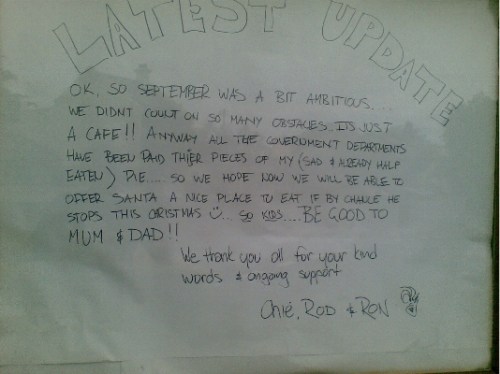 LATEST UPDATE
OK, SO SEPTEMBER WAS A BIT AMBITIOUS....
WE DIDNT COUNT ON SO MANY OBSTACLES. ITS JUST
A CAFE!! ANYWAY ALL THE GOVERNMENT DEPARTMENTS
HAVE BEEN PAID THIER PIECES OF MY (SAD & ALREADY HALF
EATEN) PIE..... SO WE HOPE NOW WE WILL BE ABLE TO
OFFER SANTA A NICE PLACE TO EAT IF BY CHANCE HE
STOPS THIS CRISTMAS ... SO KIDS.... BE GOOD TO
MUM & DAD!!
We thank you all for your kind
words & ongoing support
ROD & RON